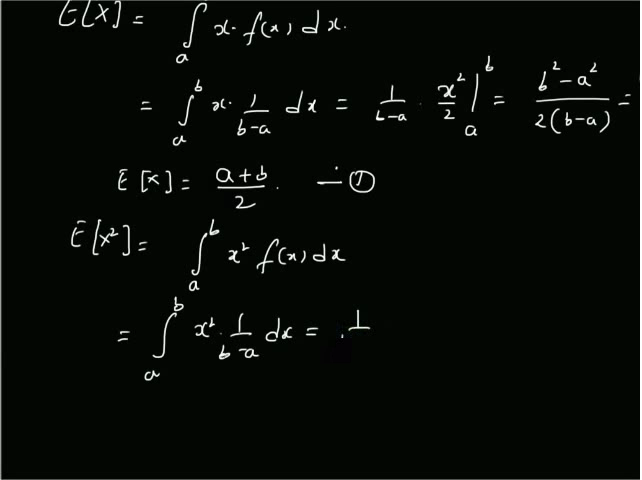 E[X] = ∫ₐ x· f(x) dx.
= ∫ₐᵇ x· 1/(b-a) dx = 1/(b-a) · x²/2 |ₐᵇ = (b² - a²)/(2(b-a)) =
E[X] = (a+b)/2. — ①
E[X²] = ∫ₐᵇ x² f(x) dx
= ∫ₐᵇ x² · 1/(b-a) dx = · 1/